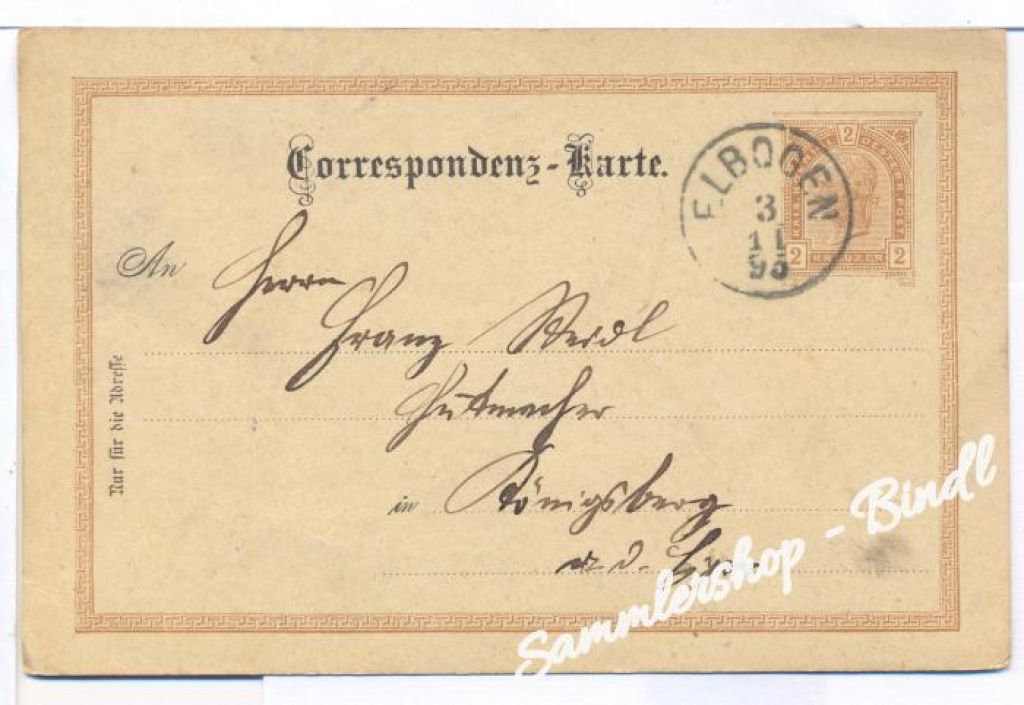 Correspondenz-Karte.
ELBOGEN
3
11
95
2
2 KREUZER 2
An Herrn
Franz Weidl
Hutmacher
in Königsberg
a. d. Eger
Nur für die Adresse
Sammlershop - Bindl